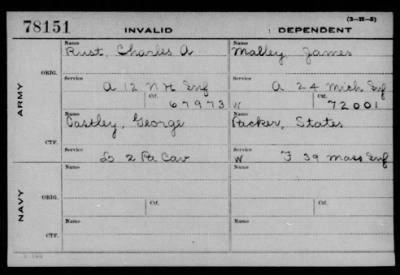 78151 INVALID DEPENDENT (3-H-5)
Name Name
Rust, Charles A Malley James
ORIG. Service Service
A 12 N H Inf A 24 Mich Inf
Ctf. Ctf.
67973 W 72001
ARMY
Name Name
Castley, George Packer, States
CTF. Service Service
L 2 Pa Cav W F 39 Mass Inf
Name Name
ORIG. Ctf. Ctf.
NAVY
Name Name
CTF.